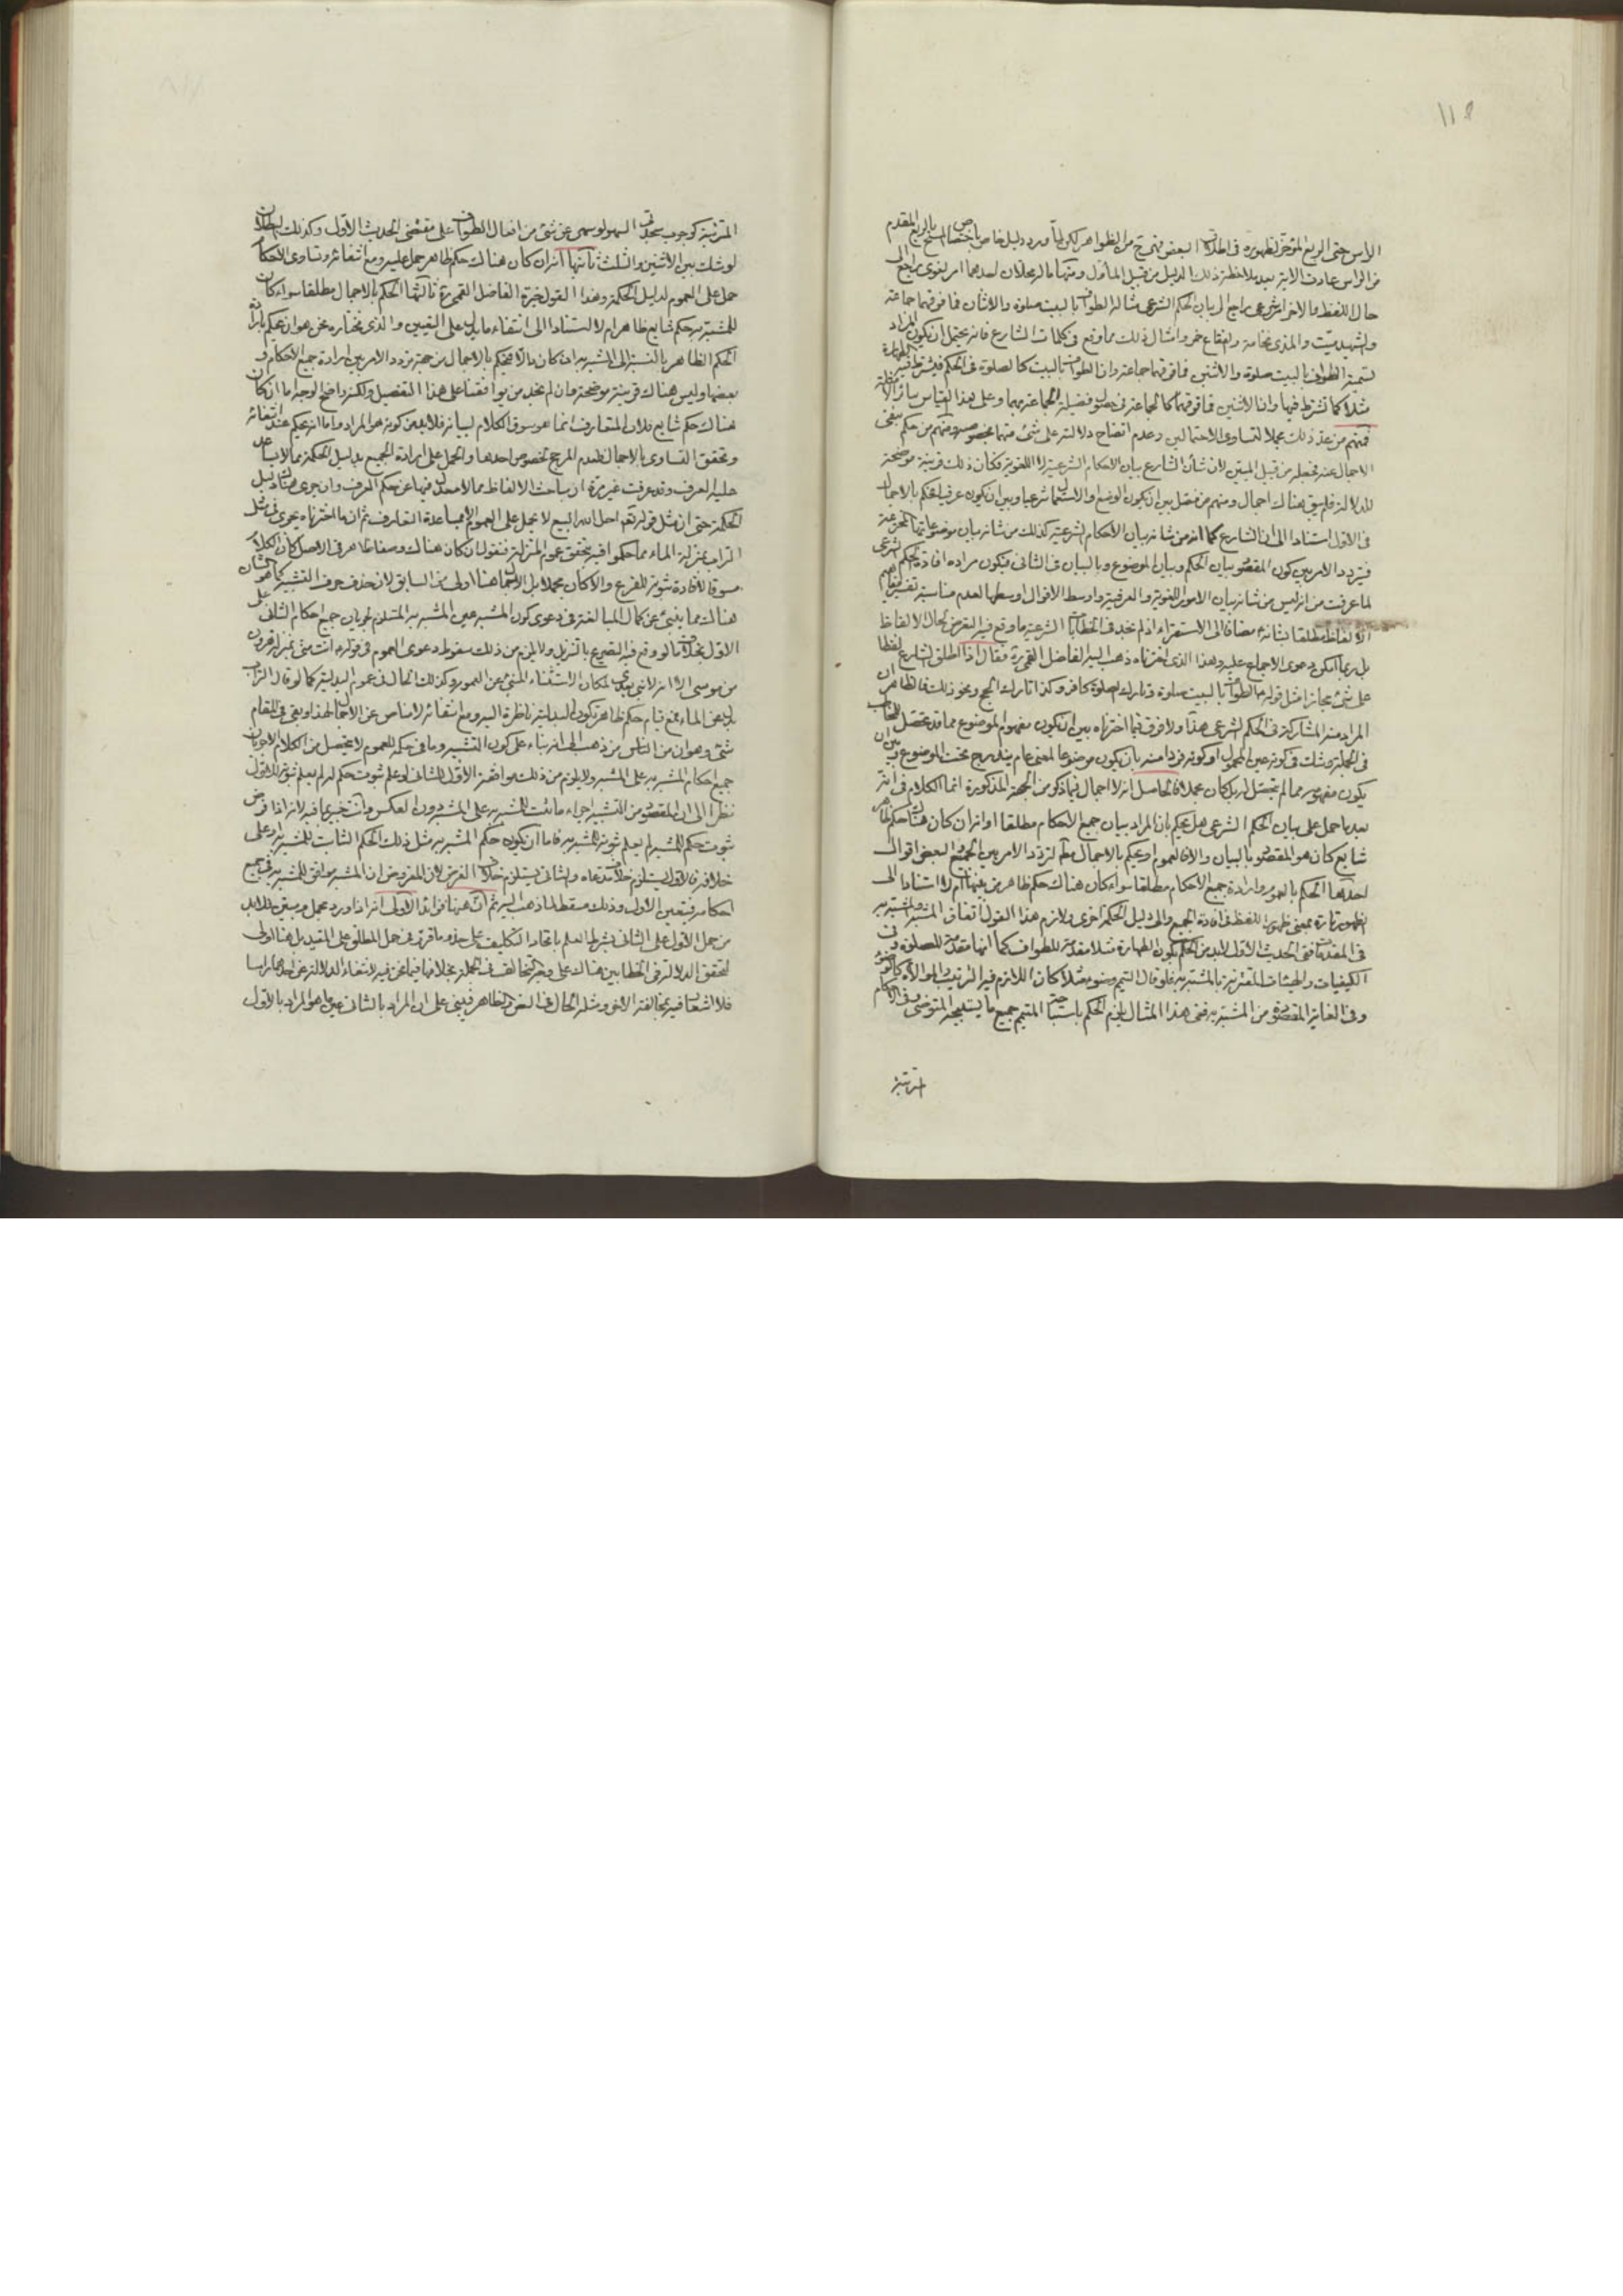 ١١٨
الرأس حتى الربع المؤخر لظهوره في اطلاق البعض فهي ح من الظواهر لكن لما ورد دليل خاص باختصاص المسح بالربع المقدم
من الرأس عادت الاية بعد ملاحظة ذلك الدليل من قبيل المأول ومنها ماله محملان احدهما امر لغوى راجع الى
حال اللفظ والاخر امر شرعى راجع الى بيان الحكم الشرعى مثاله الطواف بالبيت صلوة والاثنان فما فوقهما جماعة
والشهيد ميت والمذى نخامة والفقاع خمر وامثال ذلك مما وقع في كلمات الشارع فانه يحتمل ان يكون المراد
تسمية الطواف بالبيت صلوة والاثنين فما فوقهما جماعة وان الطواف بالبيت كالصلوة في الحكم فيشترط فيه الطهارة
مثلا كما تشترط فيها وان الاثنين فما فوقهما كالجماعة في حصول فضيلة الجماعة بهما وعلى هذا القياس سائر الامثلة
فمنهم من عد ذلك مجملا لتساوى الاحتمالين وعدم اتضاح دلالته على شئ منهما بخصوصه ومنهم من حكم بنفى
الاجمال عنه فجعله من قبيل المبين لان شأن الشارع بيان الاحكام الشرعية لا اللغوية فكان ذلك قرينة موضحة
للدلالة فلم يبق هناك اجمال ومنهم من فصل بين ان يكون الوضع او الاستعمال شرعيا وبين ان يكون عرفيا فحكم بالاجمال
في الاول استنادا الى ان الشارع كما انه من شانه بيان الاحكام الشرعية كذلك من شانه بيان موضوعاتها المخترعة
فيتردد الامر بين كون المقصود بيان الحكم وبيان الموضوع وبالبيان في الثانى فيكون مراده افادة الحكم الشرعى
لما عرفت من انه ليس من شانه بيان الامور اللغوية والعرفية واوسط الاقوال اوسطها لعدم مناسبة تفسير مفاهيم
الالفاظ مطلقا بشانه مضافا الى الاستقراء اذ لم نجد في الخطابات الشرعية ما وقع فيه التعرض لحال الالفاظ
بل ربما امكن دعوى الاجماع عليه وهذا الذى اخترناه ذهب اليه الفاضل القمي ره فقال اذا اطلق الشارع لفظا
على شئ مجازا مثل قوله ع الطواف بالبيت صلوة وتارك الصلوة كافر وكذا تارك الحج ونحو ذلك فالظاهر ان
المراد منه المشاركة في الحكم الشرعى هذا ولا فرق فيما اخترناه بين ان يكون مفهوم الموضوع مما قد تحصل للمخاطب
في الجملة وشك في كونه عين المحمول او كونه فردا منه بان يكون موضوعا لمعنى عام يندرج تحت الموضوع وبين ان
يكون مفهومه مما لم يتحصل له بل كان مجملا فالحاصل انه لا اجمال فيما ذكر من الجهة المذكورة انما الكلام في انه
بعد ما حمل على بيان الحكم الشرعى هل يحكم بان المراد بيان جميع الاحكام مطلقا او انه ان كان هناك حكم ظاهر
شايع كان هو المقصود بالبيان والا فالعموم او يحكم بالاجمال مطم لتردد الامر بين الجميع والبعض اقوال
احدها الحكم بالعموم وارادة جميع الاحكام مطلقا سواء كان هناك حكم ظاهر من بينها ام لا استنادا الى
الظهور تارة بمعنى ظهور اللفظ في افادة الجميع والى دليل الحكمة اخرى ولازم هذا القول اتفاق المشبه والمشبه به
في المقدمات ففى الحديث الاول لابد من الحكم بكون الطهارة مثلا مقدمة للطواف كما انها مقدمة للصلوة وفى
الكيفيات والهيئات المقترنة بالمشبه به فلو قال التيمم وضوء مثلا كان اللازم فيه الترتيب والموالاة كالوضوء
وفى الغاية المقصودة من المشبه به ففى هذا المثال يلزم الحكم باستباحة المتيمم جميع ما يستبيحه المتوضى وفى الاحكام
المترتبة
المترتبة كوجوب سجدتى السهو لو سهى عن شئ من افعال الطواف على مقتضى الحديث الاول وكذلك البطلان
لو شك بين الاثنين والثلث ثانيها انه ان كان هناك حكم ظاهر حمل عليه ومع انتفائه وتساوى الاحكام
حمل على العموم لدليل الحكمة وهذا القول خيرة الفاضل القمي ره ثالثها الحكم بالاجمال مطلقا سواء كان
للمشبه به حكم شايع ظاهر ام لا استنادا الى انتفاء ما يدل على التعيين والذى نختاره نحن هو ان يحكم بارادة
الحكم الظاهر بالنسبة الى المشبه به ان كان والا فيحكم بالاجمال من جهة تردد الامر بين ارادة جميع الاحكام و
بعضها وليس هناك قرينة موضحة وان لم نجد من يوافقنا على هذا التفصيل ولكنه واضح الوجه اما ان كان
هناك حكم شايع فلان المتعارف انما هو سوق الكلام لبيانه فلابد من كونه هو المراد واما انه يحكم عند انتفائه
وتحقق التساوى بالاجمال فلعدم المرجح لخصوص احدها والحمل على ارادة الجميع بدليل الحكمة مما لا يساعد
عليه العرف وقد عرفت غير مرة ان مباحث الالفاظ مما لا معدل فيها عن حكم العرف وان جرى هناك دليل
الحكمة حتى ان مثل قوله تعم احل الله البيع لا يحمل على العموم الا بمساعدة التعارف ثم ان ما اخترناه يجرى في مثل
التراب بمنزلة الماء مما حكموا فيه بتحقق عموم المنزلة فنقول ان كان هناك وصف ظاهر في الاصل كان الكلام
مسوقا لافادة ثبوته للفرع والا كان مجملا بل الاجمال هنا اولى من السابق لان حذف حرف التشبيه كما هو الشان
هناك مما ينبئ عن كمال المبالغة في دعوى كون المشبه عين المشبه به المستلزم لجريان جميع احكام الثانى على
الاول بخلاف ما لو وقع فيه التصريح بالتنزيل ولا يلزم من ذلك سقوط دعوى العموم في قوله ع انت منى بمنزلة هرون
من موسى الا انه لا نبى بعدى لمكان الاستثناء المنبئ عن العموم وكذلك الحال في عموم البدلية كما لو قال التراب
بدل عن الماء فمع قيام حكم ظاهر تكون البدلية ناظرة اليه ومع انتفائه لا مناص عن الاجمال هذا وبقى في المقام
شئ وهو ان من الناس من ذهب الى انه بناء على كون التشبيه وما في حكمه للعموم لا يتحصل من الكلام الا جريان
جميع احكام المشبه به على المشبه ولا يلزم من ذلك موافقة الاول للثانى لو علم ثبوت حكم له لم يعلم ثبوته للاول
نظرا الى ان المقصود من التشبيه اجراء ما ثبت للمشبه به على المشبه دون العكس وانت خبير بما فيه لانه اذا فرض
ثبوت حكم للمشبه لم يعلم ثبوته للمشبه به فاما ان يكون حكم المشبه به مثل ذلك الحكم الثابت للمشبه او على
خلافه فالاول يستلزم خلاف مدعاه والثانى يستلزم خلاف الفرض لان المفروض ان المشبه موافق للمشبه به في جميع
احكامه فيتعين الاول وذلك مسقط لما ذهب اليه ثم ان هنا فوائد الاولى انه اذا ورد مجمل ومبين فلابد
من حمل الاول على الثانى بشرط العلم باتحاد التكليف على حذو ما قرر في حمل المطلق على المقيد بل هنا اولى
لتحقق الدلالة في الخطابين هناك على وجه التخالف في الجملة بخلافها فيما نحن فيه لانتفاء الدلالة عن احدهما راسا
فلا اشعار فيه بمخالفة الاخر ومثله الحال في النص والظاهر فيبنى على ان المراد بالثانى عين ما هو المراد بالاول